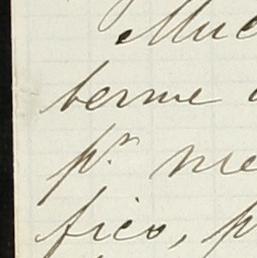 Muc
berme
pr. me
fico, p